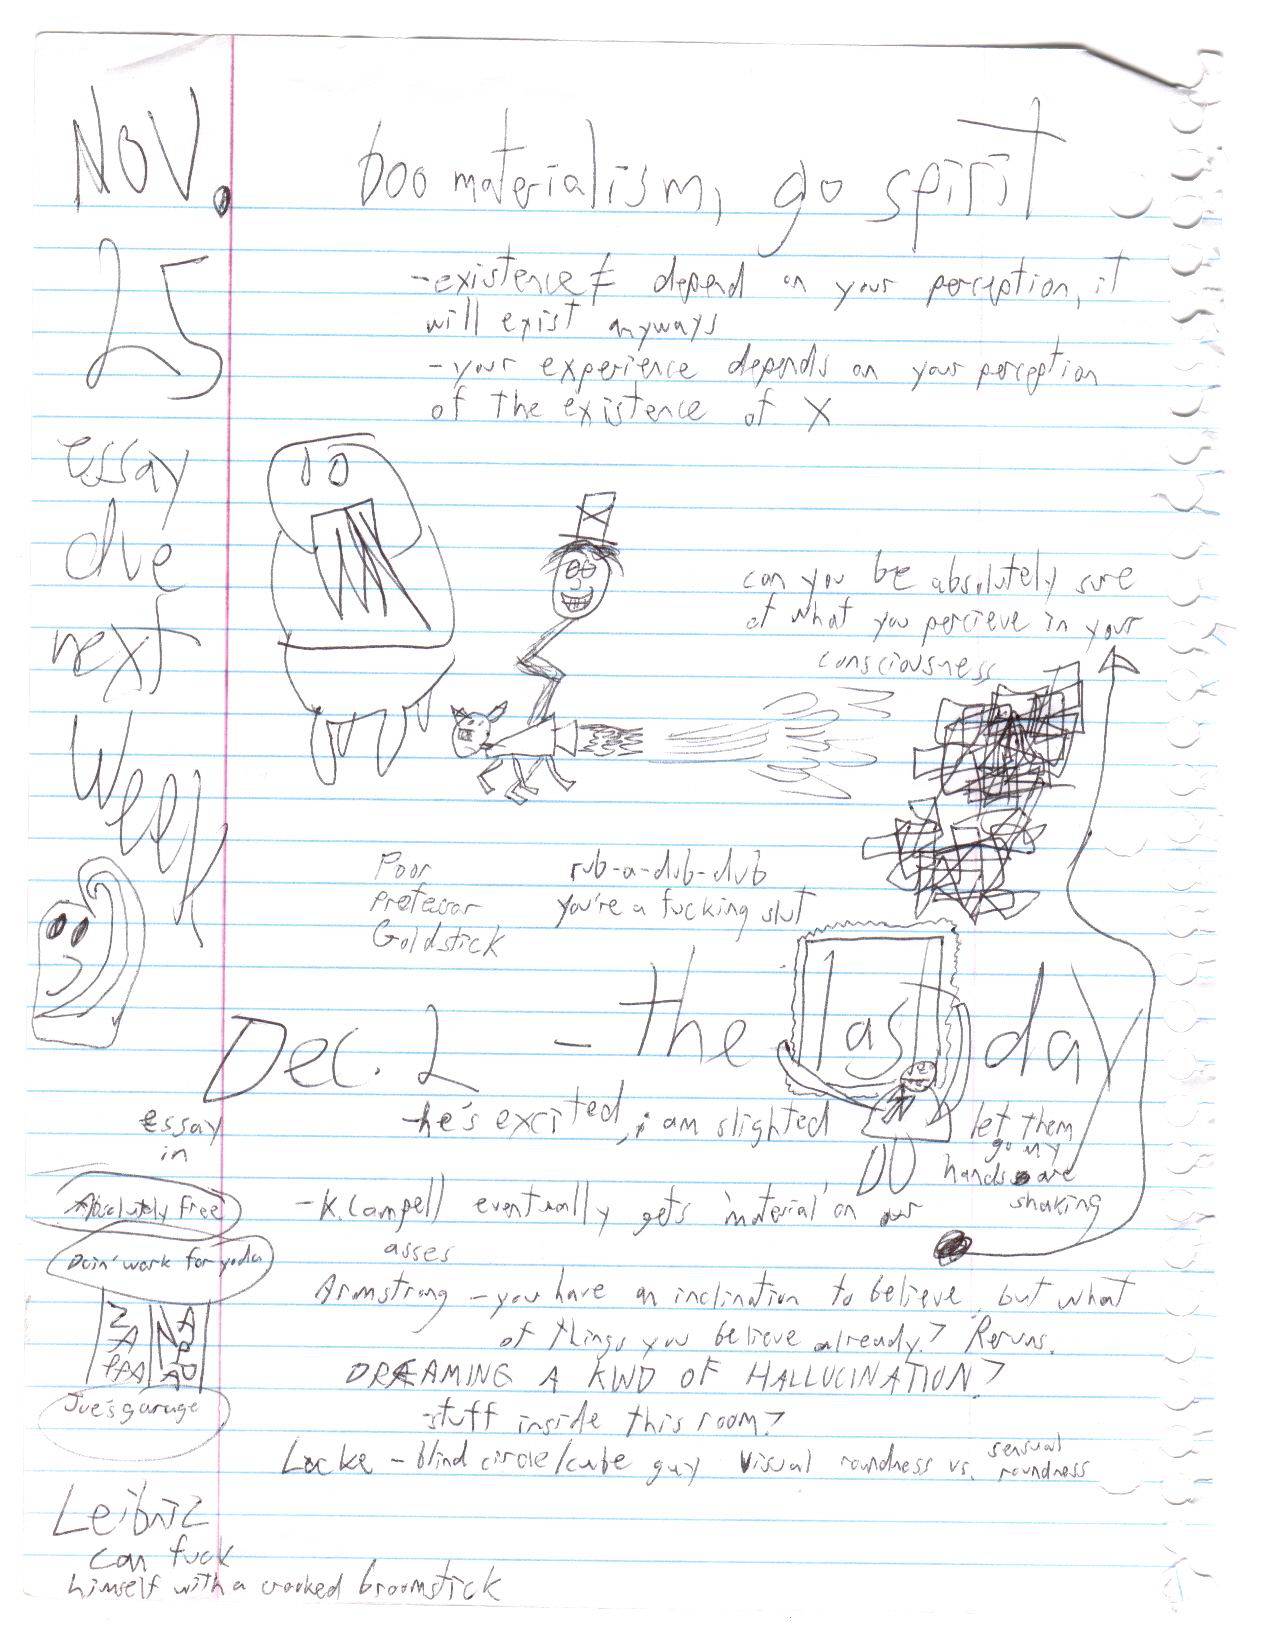 NOV.
25
boo materialism, go spirit
-existence ≠ depend on your perception, it
will exist anyways
-your experience depends on your perception
of the existence of X
essay
due
next
week
can you be absolutely sure
of what you percieve in your
consciousness
Poor
Professor
Goldstick
rub-a-dub-dub
you're a fucking slut
Dec. 2 - the last day
essay
in
-he's excited, i am slighted
let them
go my
hands are
shaking
DU
Absolutely Free
Doin' work for yuda
ZAPPA
Joe's garage
-K. Campell eventually gets 'material' on our
asses
Armstrong - you have an inclination to believe, but what
of things you believe already? Reruns.
DREAMING A KIND OF HALLUCINATION?
-stuff inside this room?
Locke - blind circle/cube guy visual roundness vs. sensual
roundness
Leibniz
can fuck
himself with a crooked broomstick